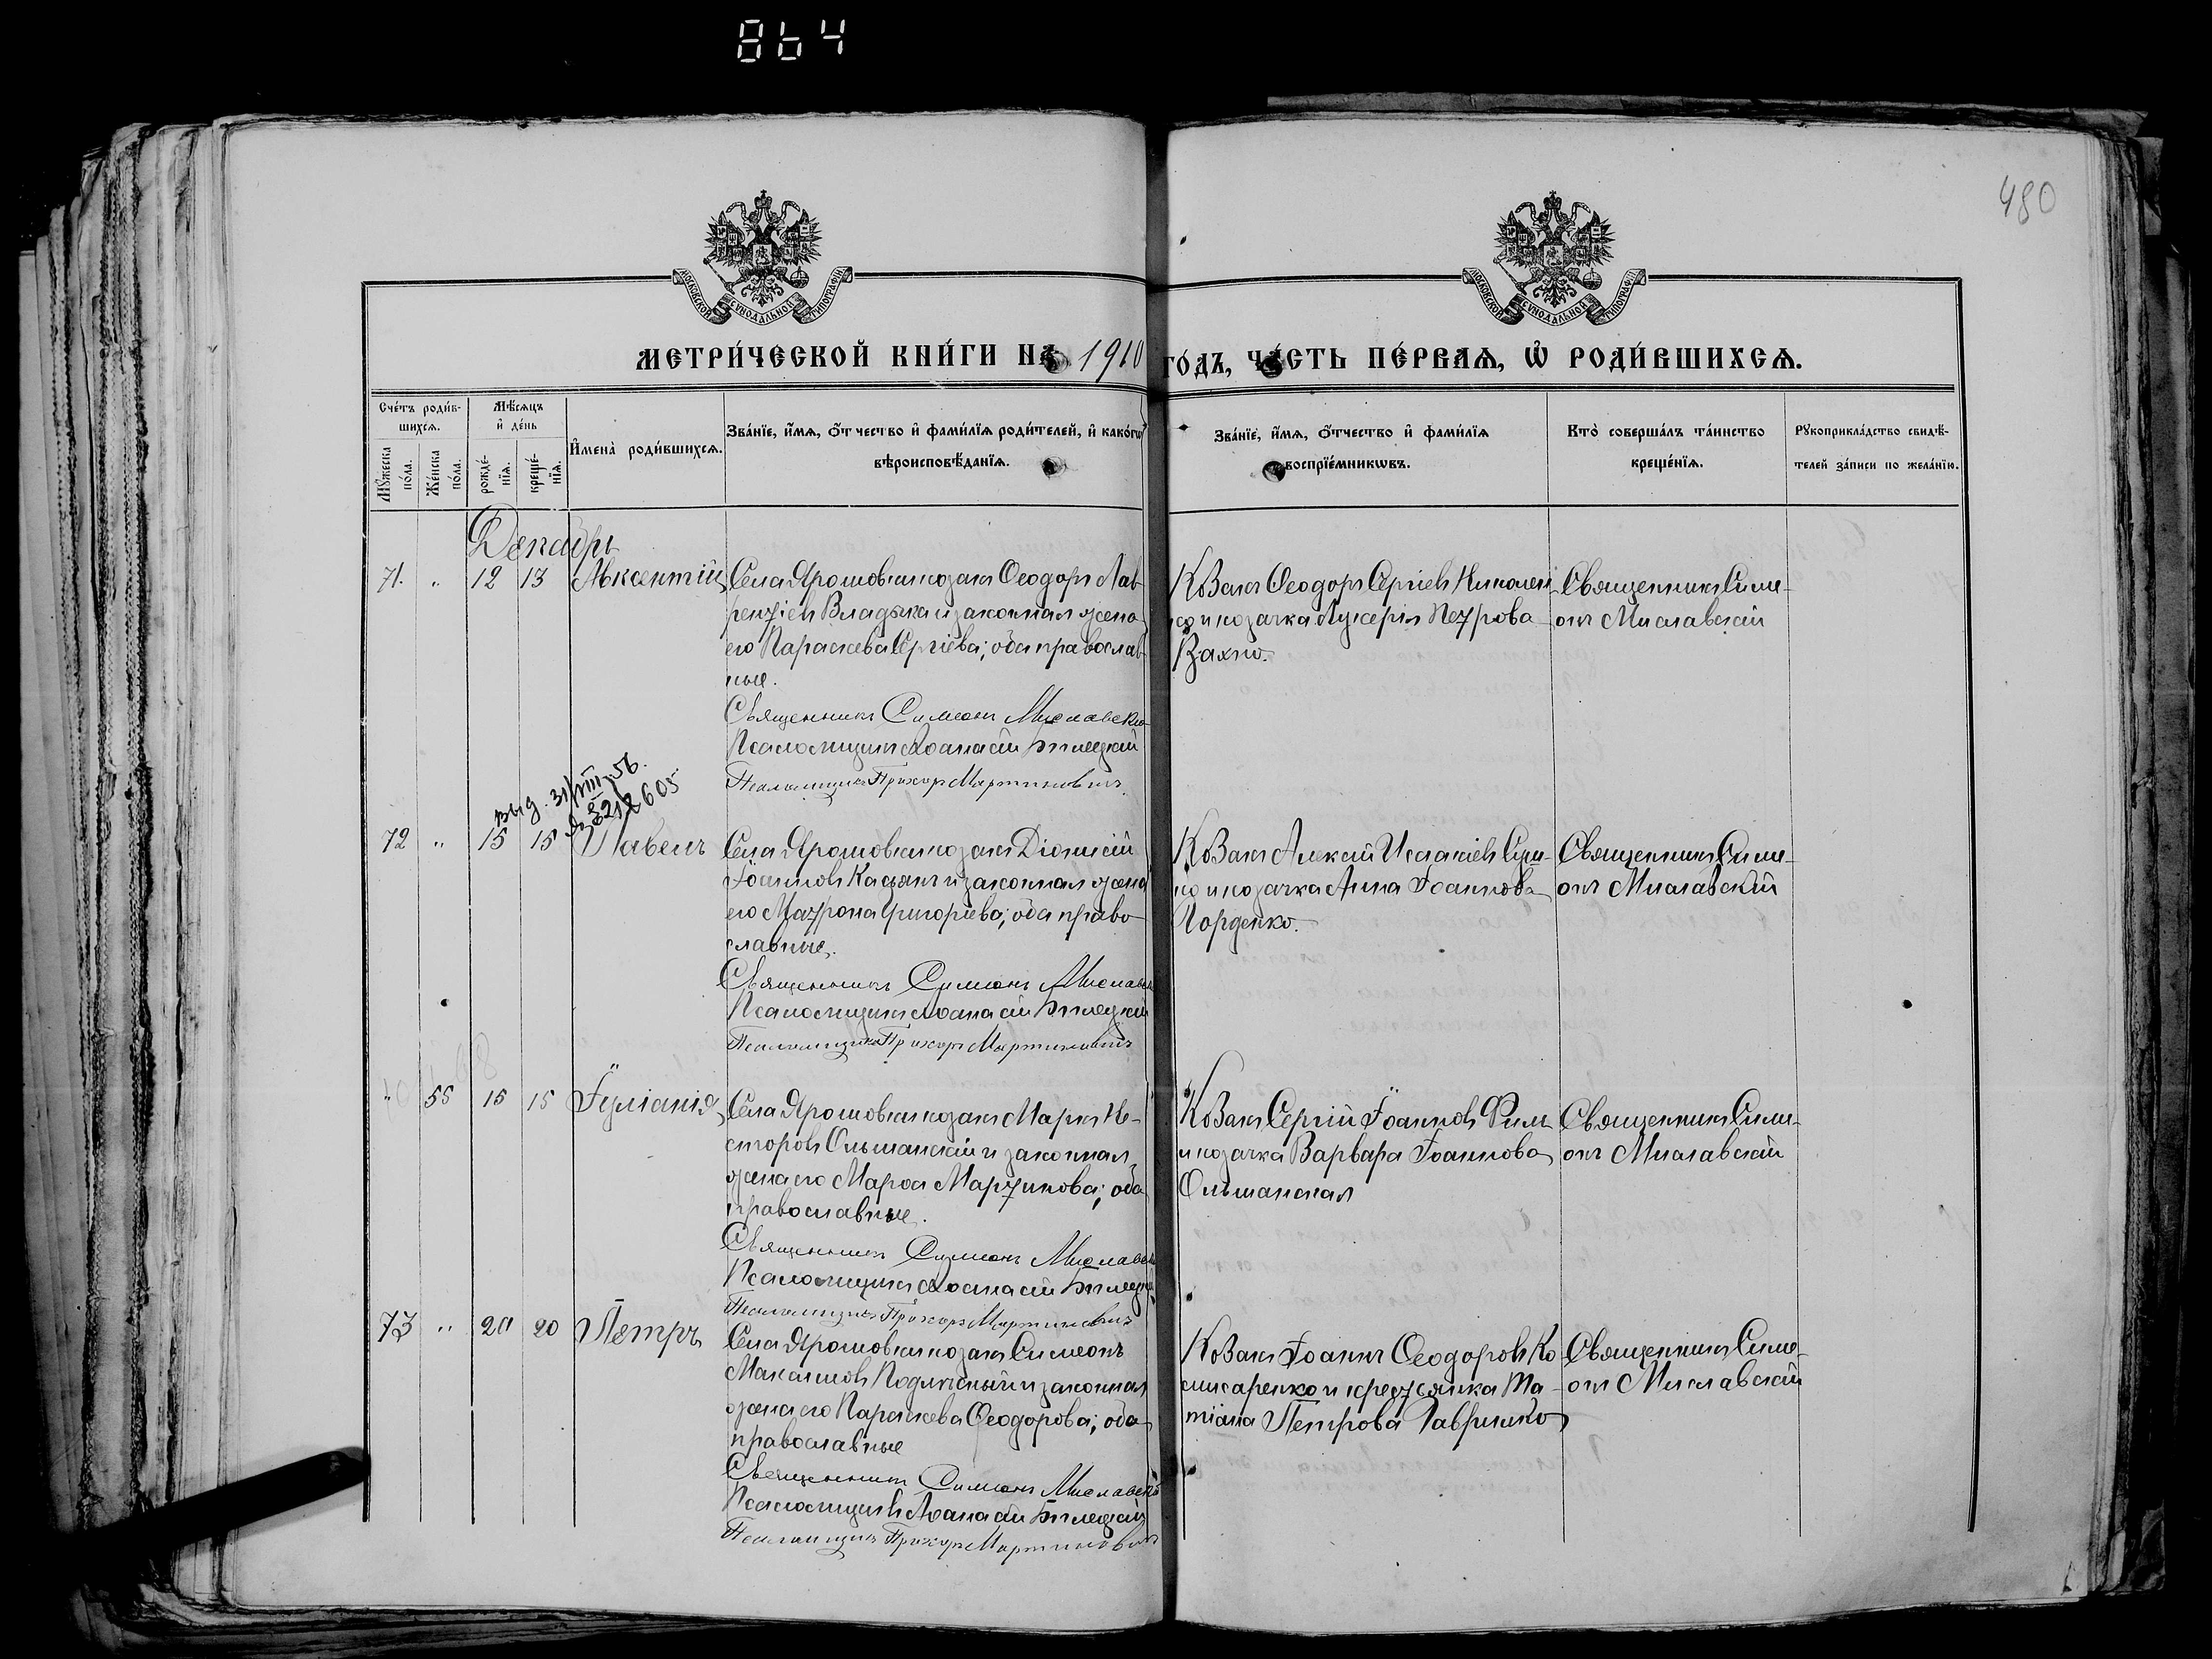 864
480
МОСКОВСКОЙ СѴНОДАЛЬНОЙ ТИПОГРАФІИ
МОСКОВСКОЙ СѴНОДАЛЬНОЙ ТИПОГРАФІИ
МЕТРИ́ЧЕСКОЙ КНИ́ГИ НА 1910 ГО́ДЪ, ЧА́СТЬ ПЕ́РВАѦ, Ѡ҆ РОДИ́ВШИХСѦ.
Сче́тъ роди́в-
шихсѧ.
Мѣ́сѧцъ
и҆ де́нь
Мꙋ́жеска
по́ла.
Же́нска
по́ла.
рожде́-
нїѧ.
креще́-
нїѧ.
И҆мена̀ роди́вшихсѧ.
Зва́нїе, и҆́мѧ, ѻ҆́тчество и҆ фами́лїѧ роди́телей, и҆ како́гѡ
вѣроисповѣ́данїѧ.
Зва́нїе, и҆́мѧ, ѻ҆́тчество и҆ фами́лїѧ
воспрїе́мникѡвъ.
Кто̀ соверша́лъ та́инство
креще́нїѧ.
Рꙋкоприкла́дство свидѣ́-
телей за́писи по жела́нїю.
Декабрь
71. " 12 13 Авксентій
Села Ярошовки козакъ Ѳеодоръ Лав-
рентіевъ Владыка и законная жена
его Параскева Сергіева; оба православ-
ные.
Священникъ Симеонъ Миславскій
Псаломщикъ Аѳанасій Билецкій
Псаломщикъ Прохоръ Мартиновичъ
Козакъ Ѳеодоръ Сергіевъ Николен-
ко и козачка Лукерія Петрова
Вахно.
Священникъ Симе-
онъ Миславскій
выд. 31/VIII 56.
72 " 15 15 Павелъ
Села Ярошовки козакъ Діонисій
Іоанновъ Касьянъ и законная жена
его Матрона Григоріева; оба право-
славные.
Священникъ Симеонъ Миславскій
Псаломщикъ Аѳанасій Билецкій
Псаломщикъ Прохоръ Мартиновичъ
Козакъ Алексій Исаакіевъ
и козачка Анна Іоаннова
Горденко.
Священникъ Симе-
онъ Миславскій
" 55 15 15 Іуліанія
Села Ярошовки козакъ Маркъ Не-
сторовъ Ольшанскій и законная
жена его Марѳа Мартинова; оба
православные.
Священникъ Симеонъ Миславскій
Псаломщикъ Аѳанасій Билецкій
Псаломщикъ Прохоръ Мартиновичъ
Козакъ Сергій Іоанновъ
и козачка Варвара Іоаннова
Ольшанская
Священникъ Симе-
онъ Миславскій
73 " 20 20 Петръ
Села Ярошовки козакъ Симеонъ
Максимовъ и законная
жена его Параскева Ѳеодорова; оба
православные
Священникъ Симеонъ Миславскій
Псаломщикъ Аѳанасій Билецкій
Псаломщикъ Прохоръ Мартиновичъ
Козакъ Іоаннъ Ѳеодоровъ Ко-
мисаренко и крестьянка Та-
тіана Петрова Гавришко
Священникъ Симе-
онъ Миславскій